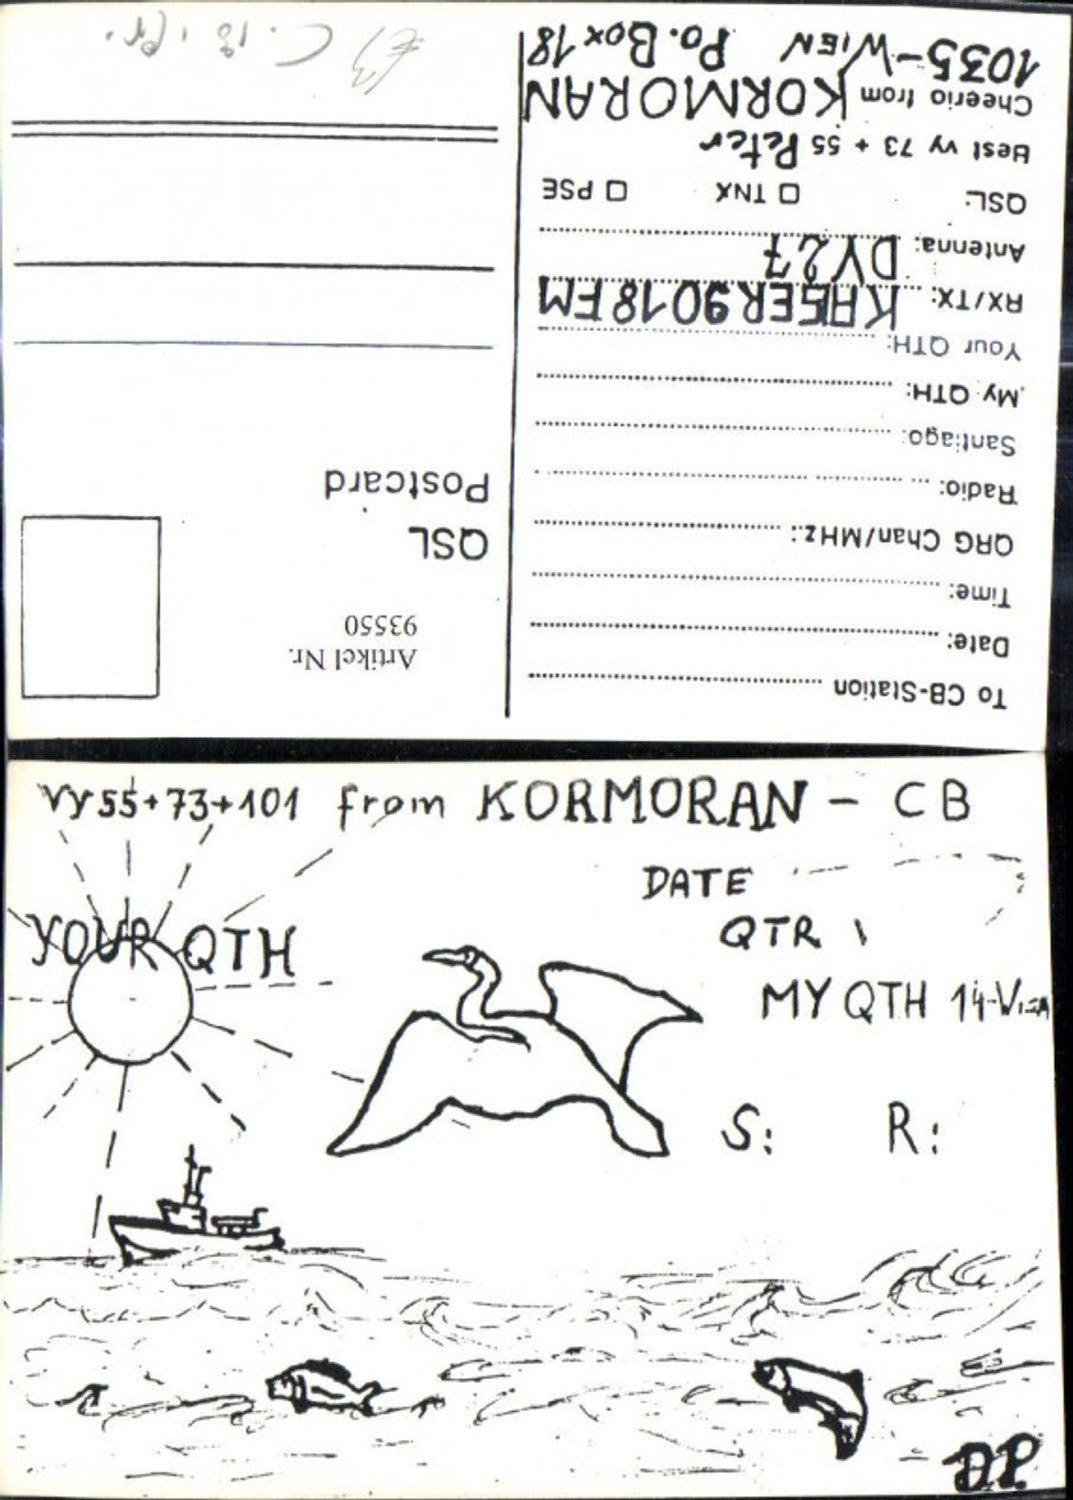 To CB-Station
Date:
Time:
QRG Chan/MHz:
Radio:
Santiago:
My QTH:
Your QTH:
RX/TX: KAISER 9018 FM
Antenna: DV27
QSL: TNX PSE
Best vy 73 + 55 Peter
Cheerio from KORMORAN
1035-WIEN Po. Box 18
Artikel Nr.
93550
QSL
Postcard
vy 55+73+101 from KORMORAN - CB
DATE
YOUR QTH
QTR
MY QTH 14-Wien
S: R: